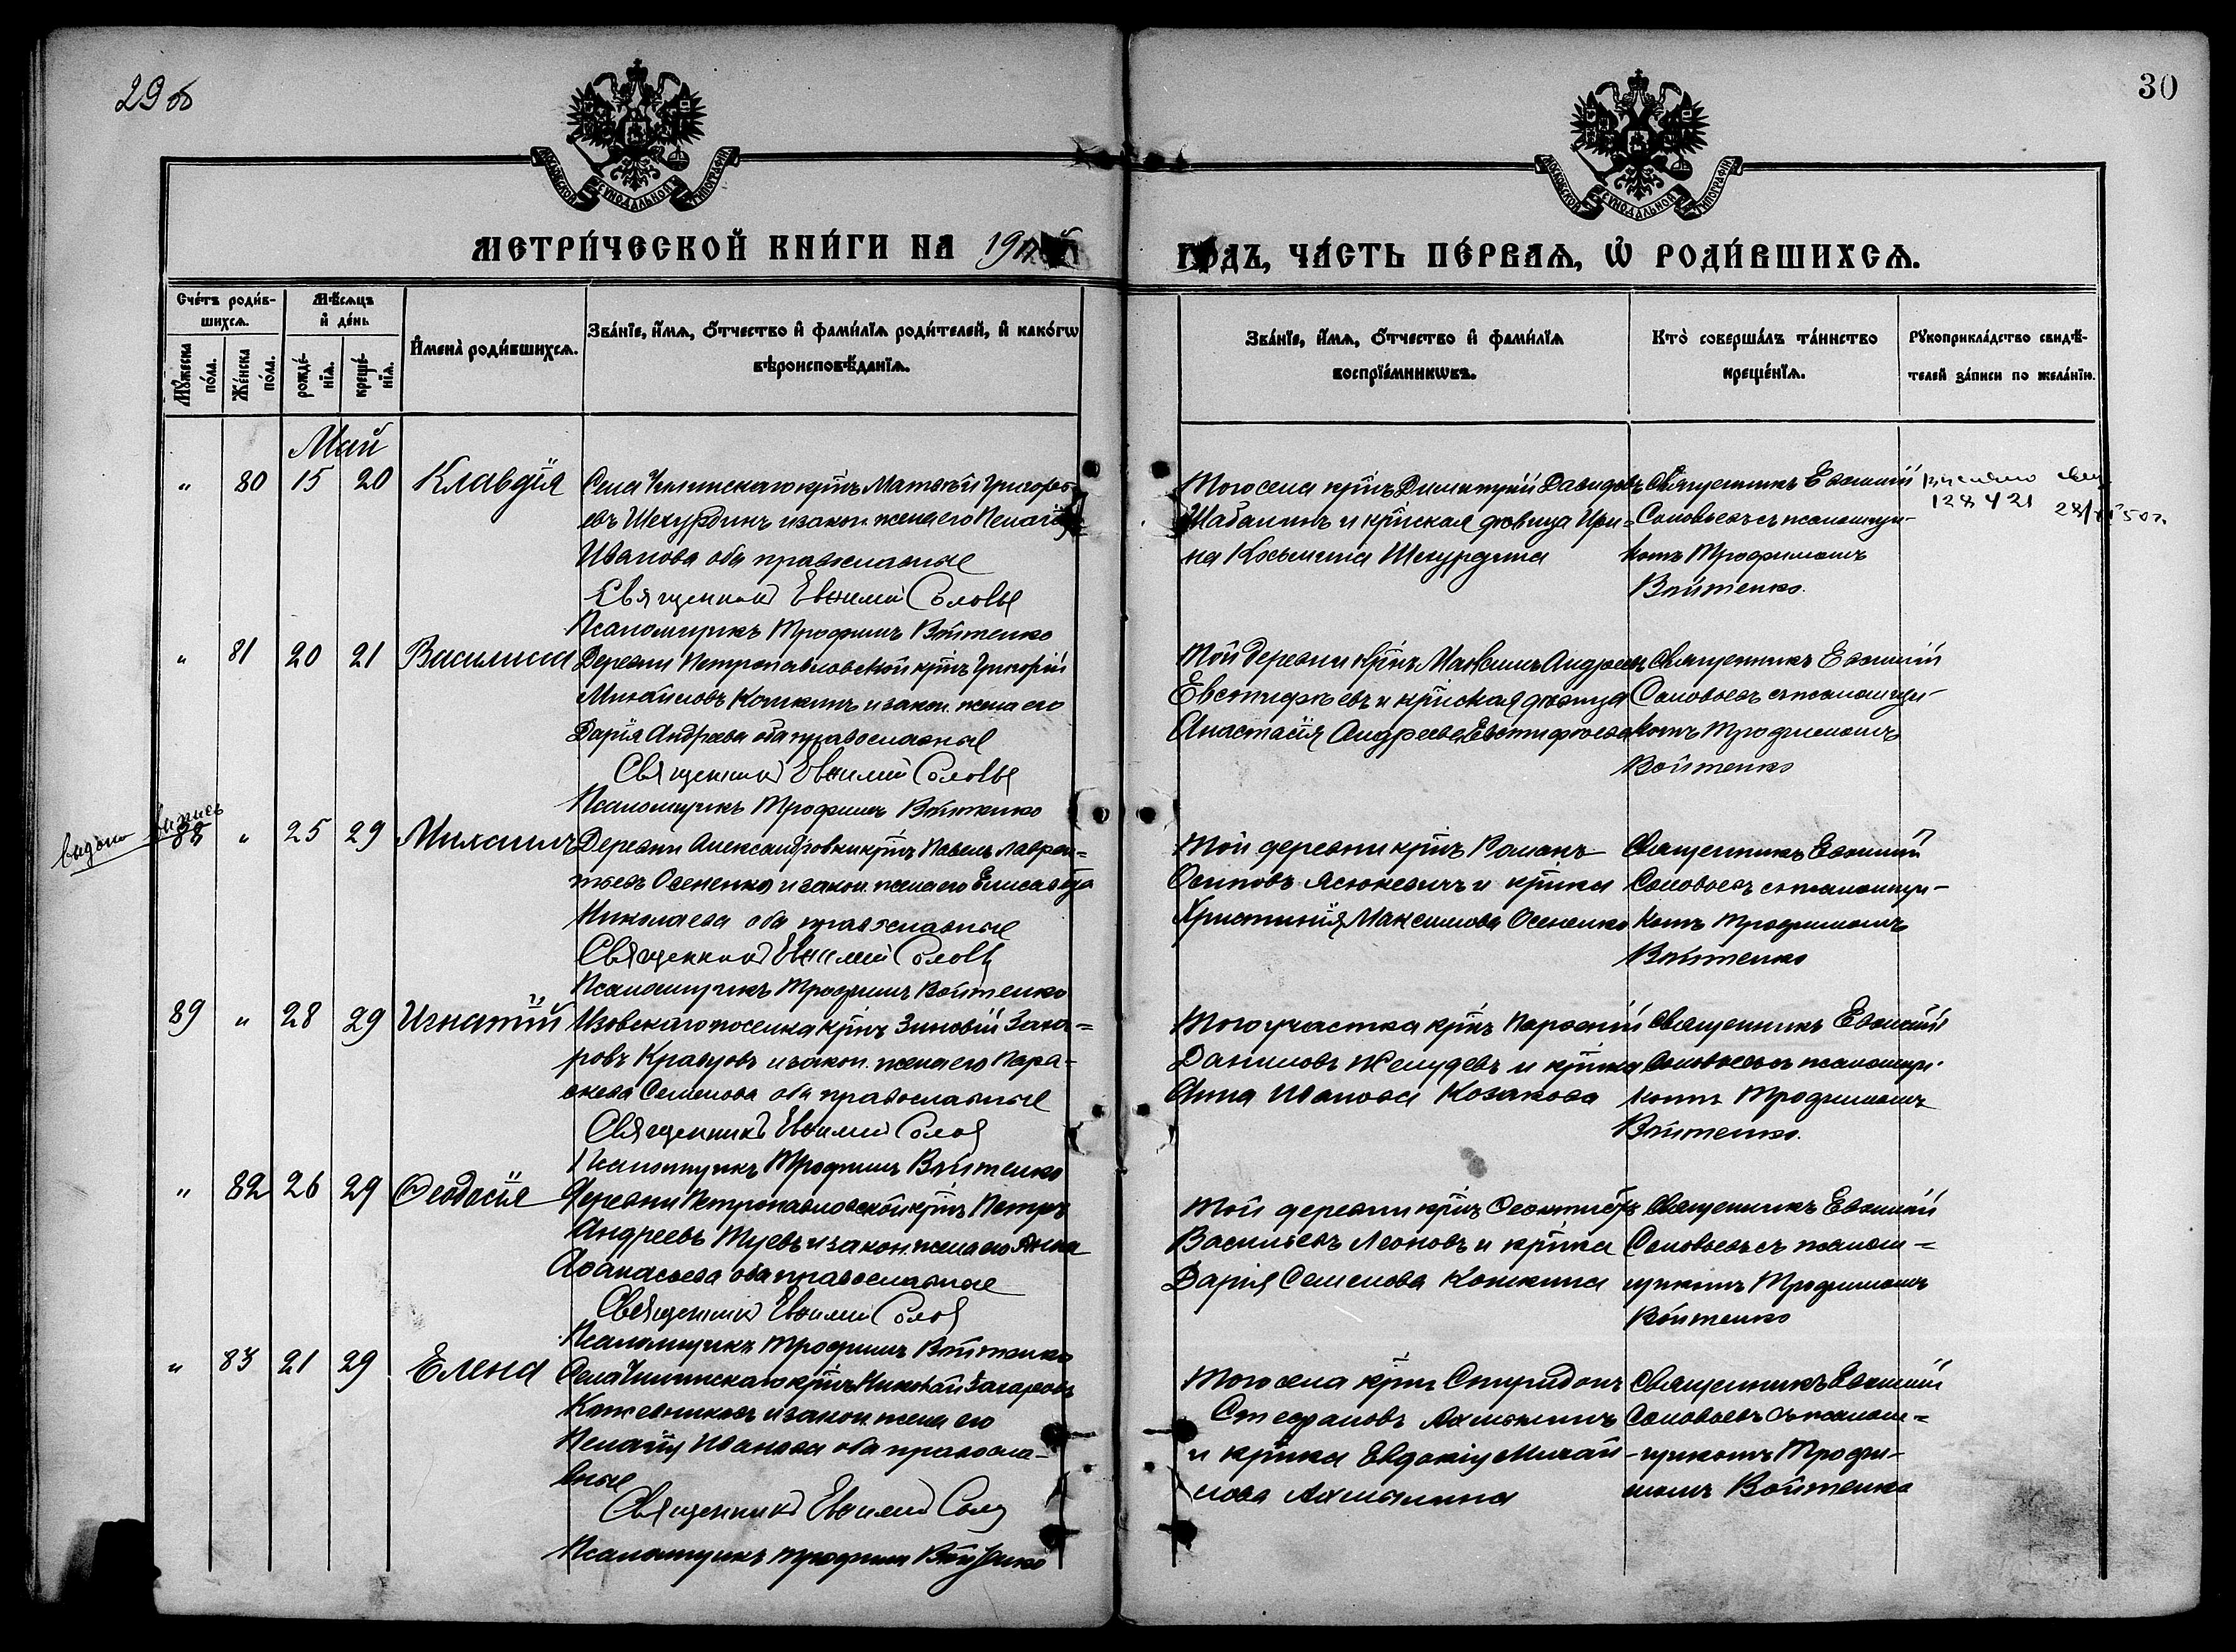 29 об
30
МОСКОВСКОЙ СѴНОДАЛЬНОЙ ТИПОГРАФІИ
МОСКОВСКОЙ СѴНОДАЛЬНОЙ ТИПОГРАФІИ
МЕТРИ́ЧЕСКОЙ КНИ́ГИ НА 19
ГО́ДЪ, ЧА́СТЬ ПЕ́РВАѦ, Ѡ҆ РОДИ́ВШИХСѦ.
Сче́тъ роди́в-
шихсѧ.
Мѣ́сѧцъ
и҆ де́нь
Мꙋ́жеска по́ла.
Же́нска по́ла.
рожде́-
нїѧ.
креще́-
нїѧ.
И҆мена̀ роди́вшихсѧ.
Зва́нїе, и҆́мѧ, ѻ҆́тчество и҆ фами́лїѧ роди́телей, и҆ како́гѡ
вѣроисповѣ́данїѧ.
Зва́нїе, и҆́мѧ, ѻ҆́тчество и҆ фами́лїѧ
воспрїе́мникѡвъ.
Кто̀ соверша́лъ та́инство
креще́нїѧ.
Рꙋкоприкла́дство свидѣ́-
телей за́писи по жела́нїю.
Май
" 80 15 20 Клавдія
Села крнъ Матѳѣй Григорь-
евъ Шекурдинъ и закон. жена его Пелагія
Иванова оба православные
Священникъ Евѳимій Соловье
Псаломщикъ Трофимъ Войтенко
Того села крнъ Димитрій Давидовъ
Шабалинъ и крнская дѣвица Ири-
на Косьмина Шекурдина
Священникъ Евѳимій
Соловьевъ съ псаломщи-
комъ Трофимомъ
Войтенко.
128421 28/ 50 г.
" 81 20 21 Василиса
Деревни Петропавловской крнъ Григорій
Михайловъ Кошкинъ и закон. жена его
Дарія Андреева оба православные
Священникъ Евѳимій Соловье
Псаломщикъ Трофимъ Войтенко
Той деревни крнъ Максимъ Андреевъ
Евстифѣевъ и крнская дѣвица
Анастасія Андреева Евстифѣева
Священникъ Евѳимій
Соловьевъ съ псаломщи-
комъ Трофимомъ
Войтенко
выдана выпись
88 " 25 29 Михаилъ
Деревни Александровки крнъ Павелъ Лаврен-
тьевъ Осененко и закон. жена его Елисавета
Николаева оба православные
Священникъ Евѳимій Соловь
Псаломщикъ Трофимъ Войтенко
Той деревни крнъ Романъ
Осиповъ Ясюкевичъ и крнка
Христинія Максимова Осененко
Священникъ Евѳимій
Соловьевъ съ псаломщи-
комъ Трофимомъ
Войтенко
89 " 28 29 Игнатій
Изовскаго поселка крнъ Зиновій Заха-
ровъ Кравцовъ и закон. жена его Пара-
скева Семенова оба православные
Священникъ Евѳимій Солов
Псаломщикъ Трофимъ Войтенко
Того участка крнъ Парѳеній
Даниловъ Желудевъ и крнка
Анна Иванова Козакова
Священникъ Евѳимій
Соловьевъ съ псаломщи-
комъ Трофимомъ
Войтенко.
" 82 26 29 Ѳеодосія
Деревни Петропавловской крнъ Петръ
Андреевъ Туевъ и закон. жена его Анна
Аѳанасьева оба православные
Священникъ Евѳимій Солов
Псаломщикъ Трофимъ Войтенко
Той деревни крнъ Ѳеоктистъ
Васильевъ Леоновъ и крнка
Дарія Семенова Кошкина
Священникъ Евѳимій
Соловьевъ съ псалом-
щикомъ Трофимомъ
Войтенко
" 83 21 29 Елена
Села крнъ Николай Захаровъ
Кожевниковъ и закон жена его
Пелагія Иванова оба правосла-
вные
Священникъ Евѳимій Соло
Псаломщикъ Трофимъ Войтенко
Того села крнъ Спиридонъ
Стефановъ
и крнка Евдокія Михай-
лова
Священникъ Евѳимій
Соловьевъ съ псалом-
щикомъ Трофи-
момъ Войтенко